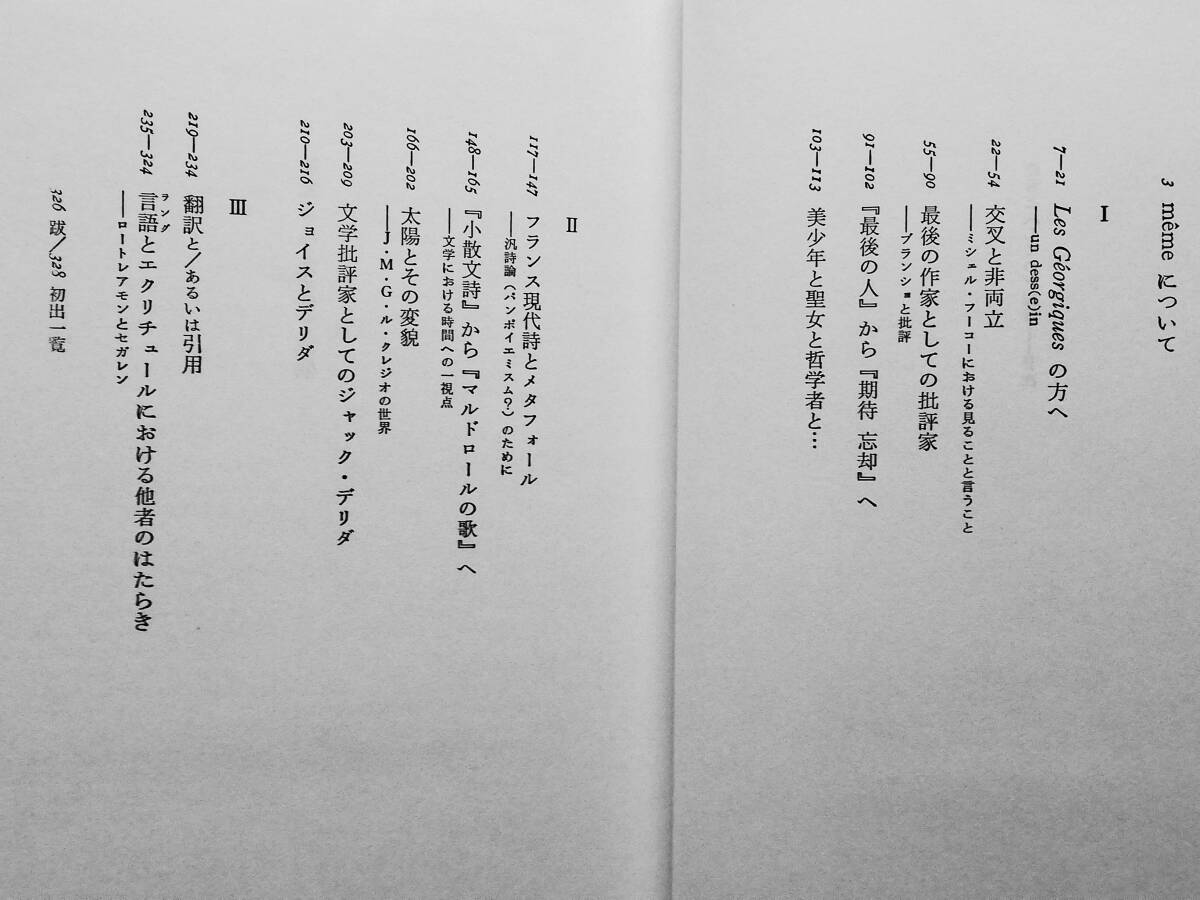 3 même について
I
7—21 Les Géorgiques の方へ
——un dess(e)in
22—54 交叉と非両立
——ミシェル・フーコーにおける見ることと言うこと
55—90 最後の作家としての批評家
——ブランショと批評
91—102 『最後の人』から『期待 忘却』へ
103—113 美少年と聖女と哲学者と…
II
117—147 フランス現代詩とメタフォール
——汎詩論（パンポイエミスム？）のために
148—165 『小散文詩』から『マルドロールの歌』へ
——文学における時間への一視点
166—202 太陽とその変貌
——J・M・G・ル・クレジオの世界
203—209 文学批評家としてのジャック・デリダ
210—216 ジョイスとデリダ
III
219—234 翻訳と／あるいは引用
235—324 言語とエクリチュールにおける他者のはたらき
ラング
——ロートレアモンとセガレン
326 跋／328 初出一覧